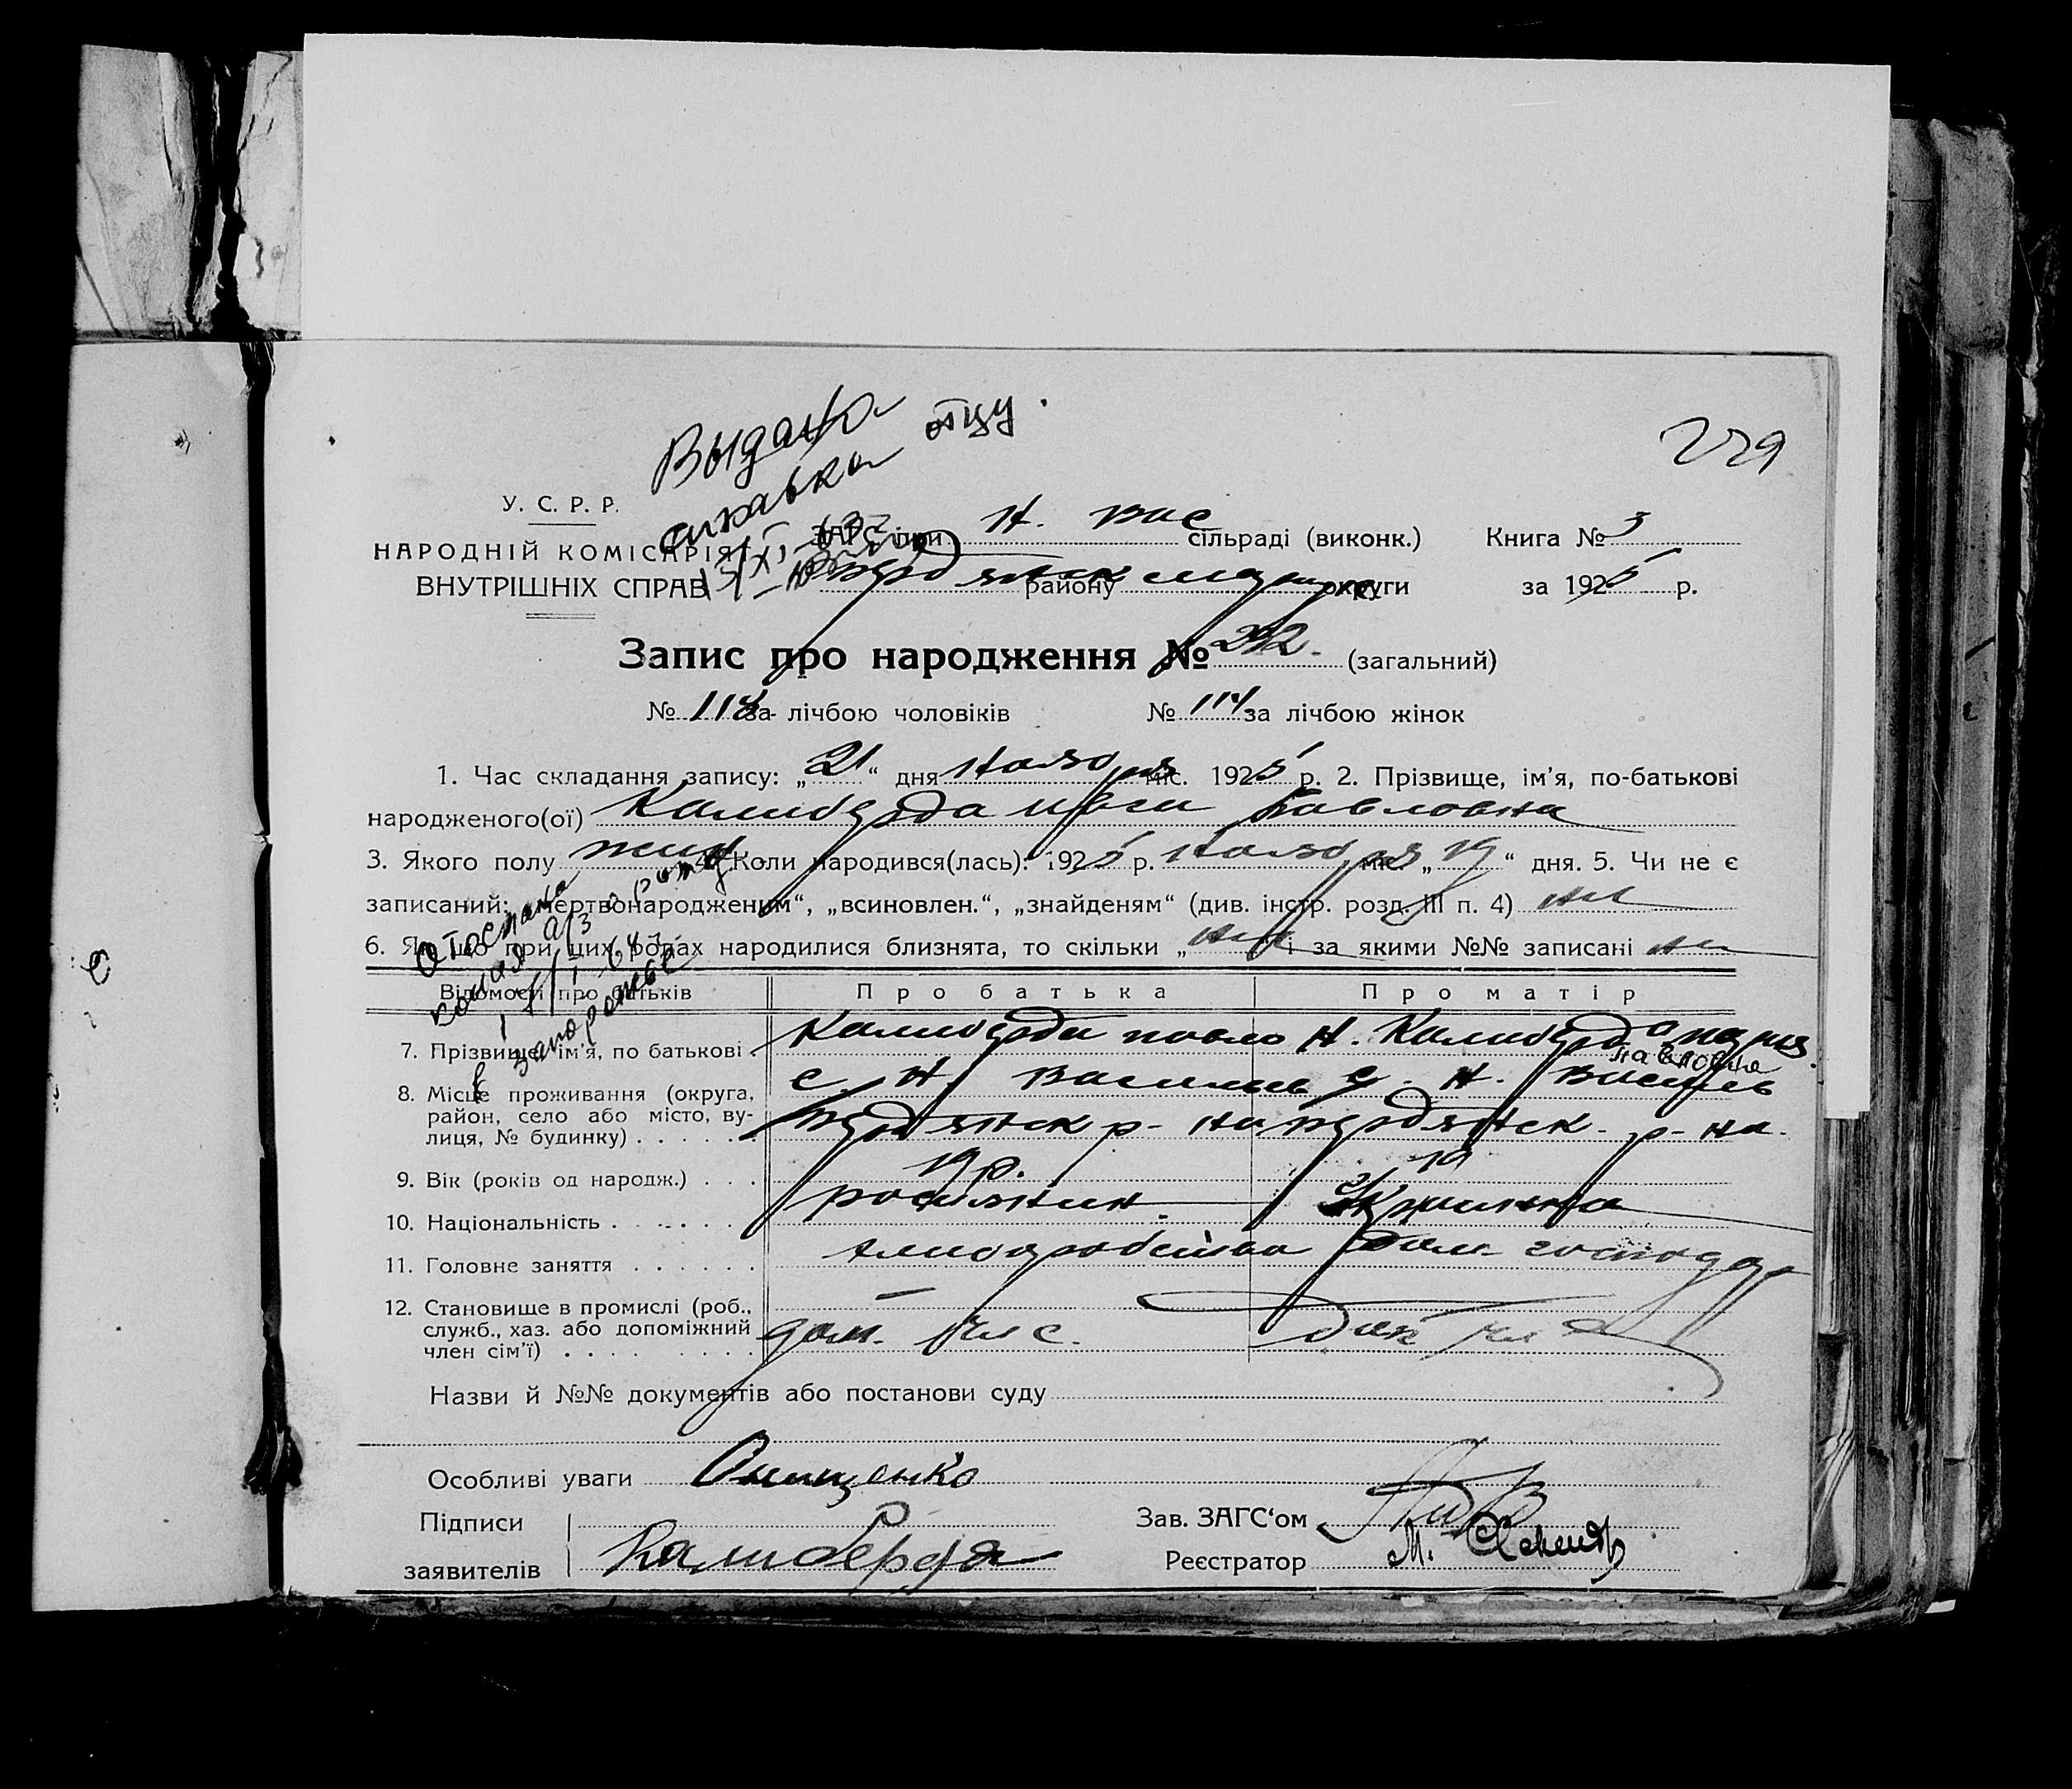 Выдана отцу.
справка
229
У. С. Р. Р.
НАРОДНІЙ КОМІСАРІЯТ
ВНУТРІШНІХ СПРАВ
ЗАГС при Н. Вас сільраді (виконк.) Книга № 3
району округи за 1925 р.
Запис про народження № 232. (загальний)
№ 118 за лічбою чоловіків № 114 за лічбою жінок
1. Час складання запису: „21“ дня міс. 1925 р. 2. Прізвище, ім'я, по-батькові
народженого(ої) Калиберда Павловна
3. Якого полу жин. 4. Коли народився(лась): 1925 р. міс. „19“ дня. 5. Чи не є
записаний: „мертвонародженим“, „всиновлен.“, „знайденям“ (див. інстр. розд. III п. 4) ни
6. Якщо при цих родах народилися близнята, то скільки „ни“ і за якими №№ записані ни
Отослана
копия а/з о рожд.
Запорожье
Відомості про батьків Про батька Про матір
7. Прізвище, ім'я, по батькові . Калиберда Павло Н. Калиберда Мария
Павловна
8. Місце проживання (округа, с. Н. Василівь с. Н. Василь
район, село або місто, ву-
лиця, № будинку) . . . . . Бердянск р-на Бердянск. р-на.
9. Вік (років од народж.) . . . 19 р. 19
10. Національність . . . . . . росиянин. Украинка
11. Головне заняття . . . . . . хлиборобство Дом. господар
12. Становище в промислі (роб., –
служб., хаз. або допоміжний доп. чл с. доп чл с
член сім'ї) . . . . . . . .
Назви й №№ документів або постанови суду
Особливі уваги Онищенко
Підписи Зав. ЗАГС'ом
заявителів Калиберда Реєстратор М.